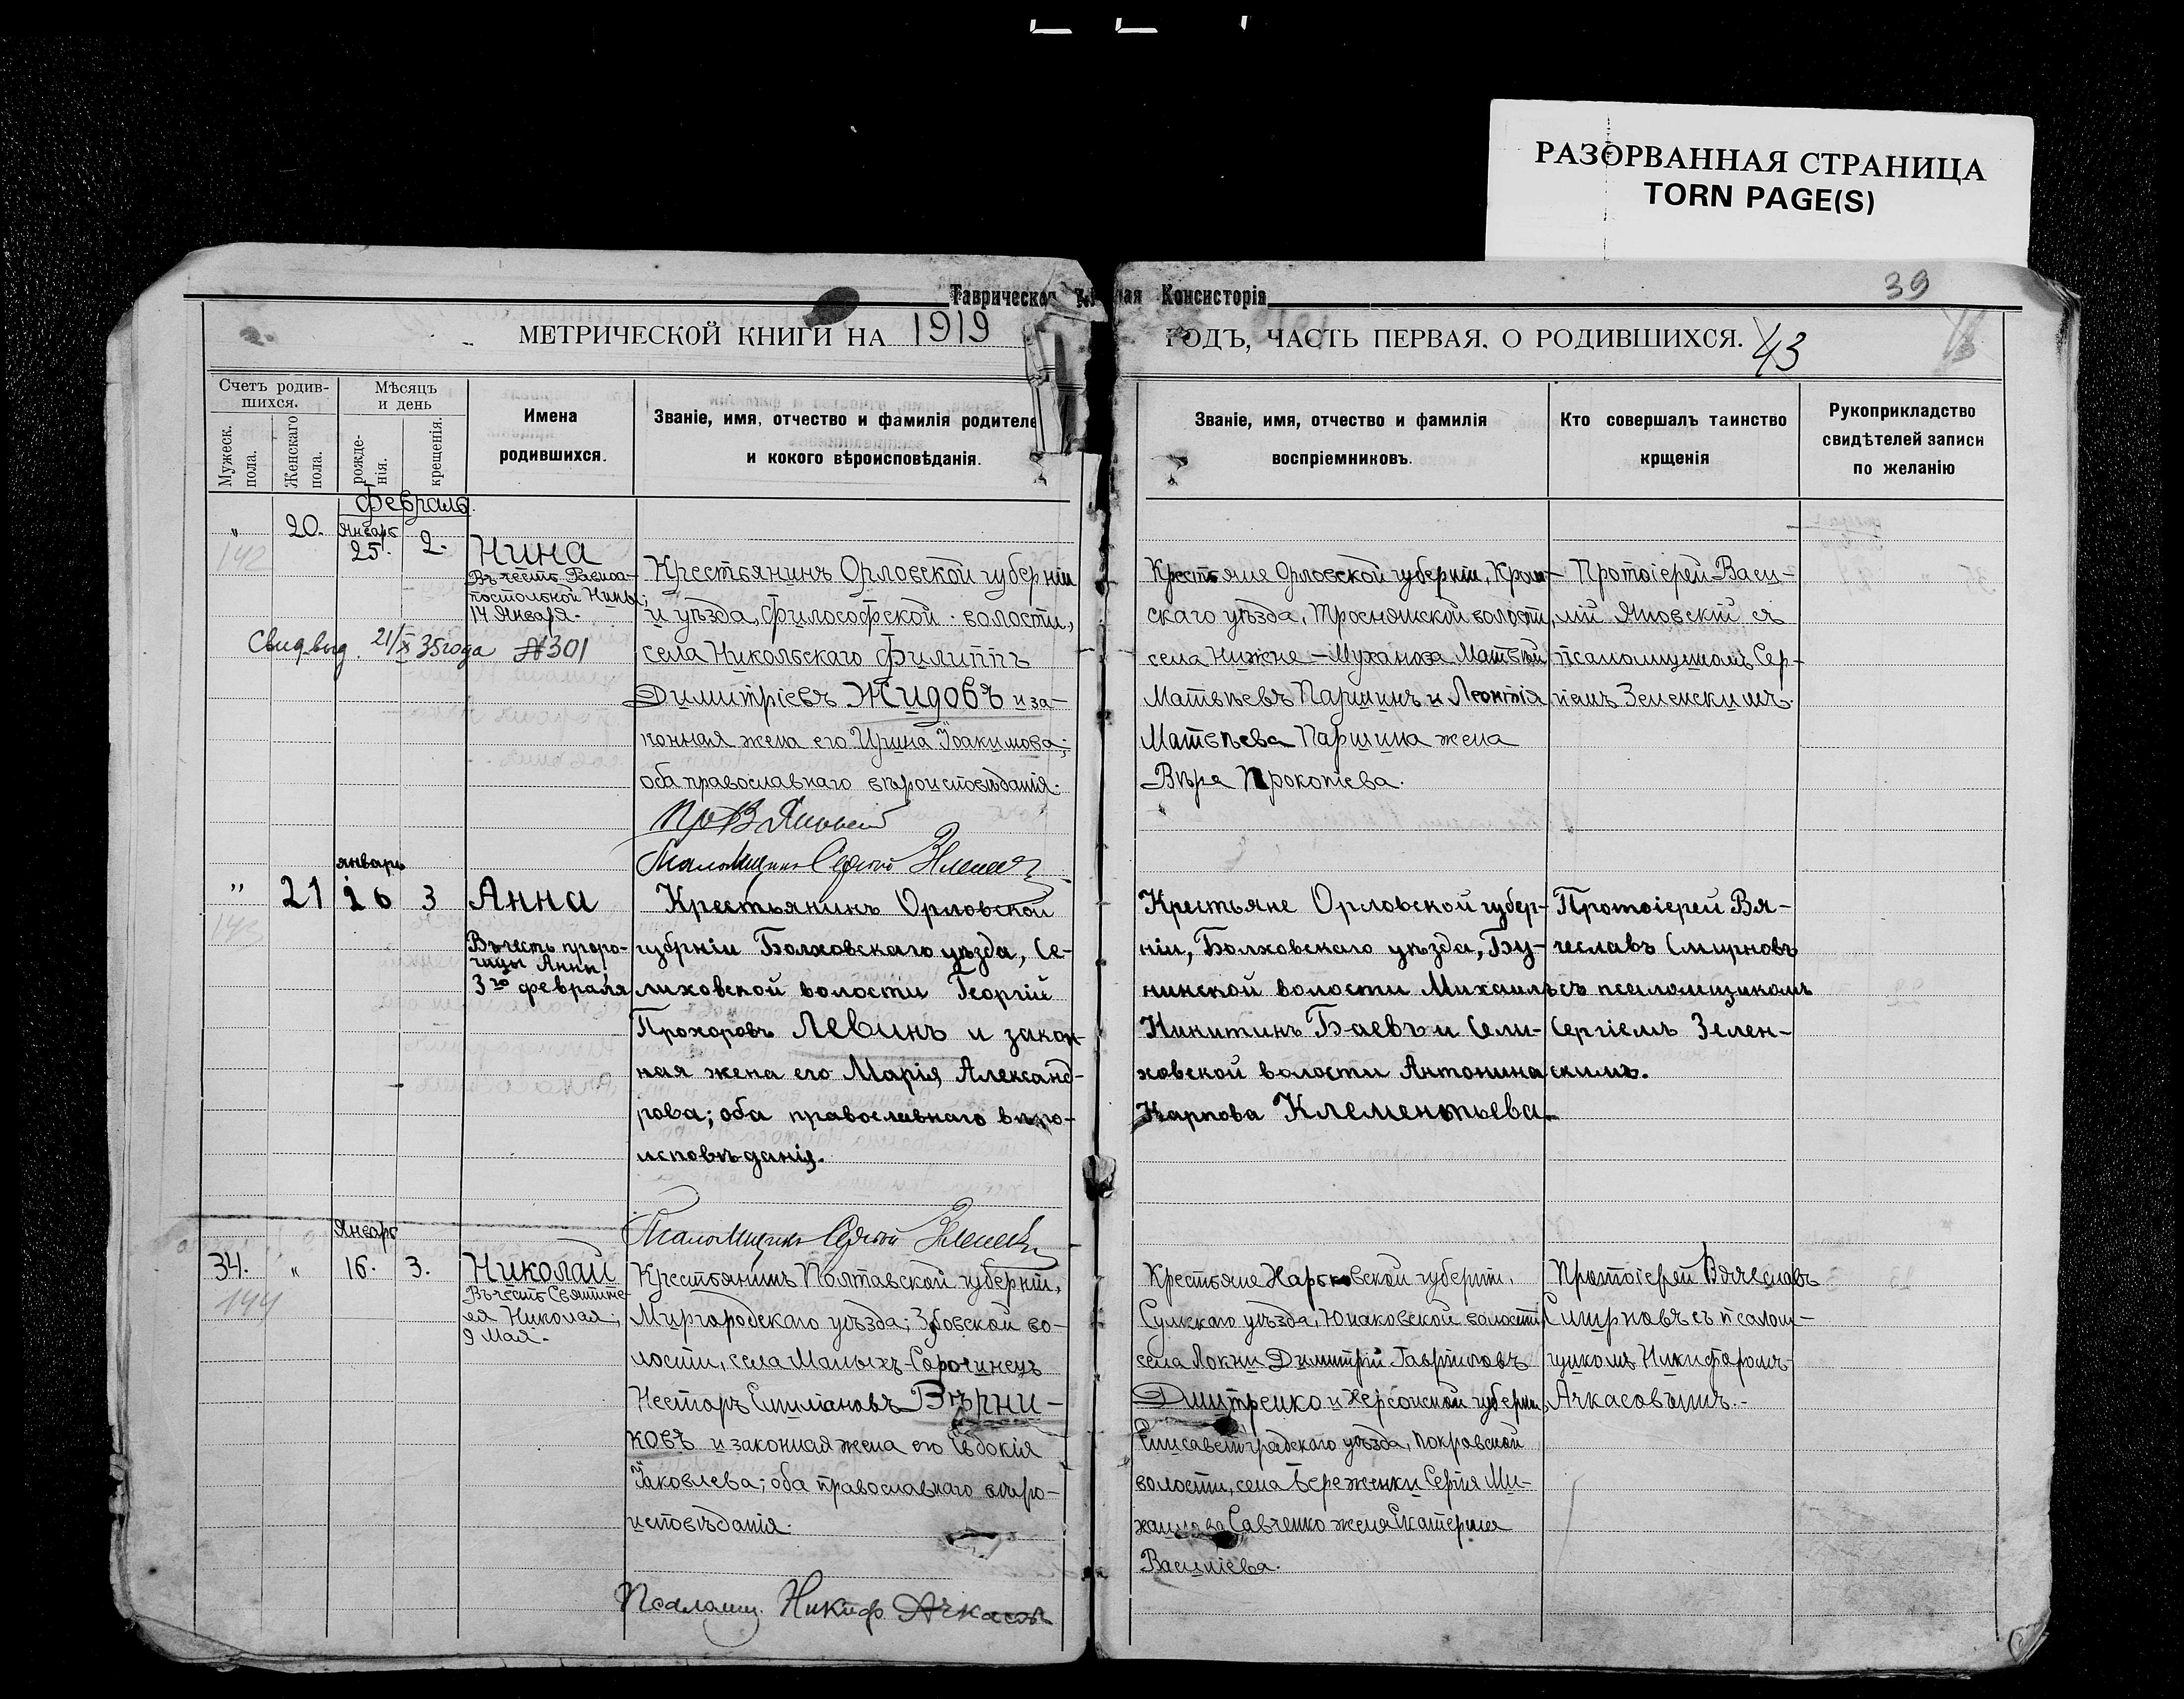 РАЗОРВАННАЯ СТРАНИЦА
TORN PAGE(S)
39
Консисторія
МЕТРИЧЕСКОЙ КНИГИ НА 1919
ГОДЪ, ЧАСТЬ ПЕРВАЯ. О РОДИВШИХСЯ.
43
Счетъ родив-
шихся.
Мужеск.
пола.
Женскаго
пола.
Мѣсяцъ
и день
рожде-
нія.
крещенія.
Имена
родившихся.
Званіе, имя, отчество и фамилія родителе
и кокого вѣроисповѣданія.
Званіе, имя, отчество и фамилія
воспріемниковъ.
Кто совершалъ таинство
крщенія
Рукоприкладство
свидѣтелей записи
по желанію
Февраль.
„ 20. Январь 25. 2.
142
Нина
Въ честь Равноа-
постольной Нины;
14 Января.
Свид. выд. 21/X 35 года №301
Крестьянинъ Орловской губерніи
и уѣзда, Философской волости,
села Никольскаго Филиппъ
Димитріевъ Жидовъ и за-
конная жена его Ирина Іоакимова;
оба православнаго вѣроисповѣданія.
Крестьяне Орловской губерніи, Кром-
скаго уѣзда, Троснянской волости,
села Нижне-Муханова Матвей
Матвѣевъ Паршинъ и Леонтія
Матвѣева Паршина жена
Вѣра Прокопіева.
Протоіерей Васи-
лій Яновскій съ
псаломщикомъ Сер-
гіемъ Зеленскимъ.
Псаломщикъ Сергѣй
январь
„ 21 16 3
143
Анна
Въ честь проро-
чицы Анны,
3го февраля
Крестьянинъ Орловской
губрніи Болховскаго уѣзда, Се-
лиховской волости Георгій
Прохоровъ Левинъ и закон-
ная жена его Марія Александ-
рова; оба православнаго вѣро-
исповѣданія.
Крестьяне Орловской губер-
ніи, Болховскаго уѣзда, Бу-
нинской волости Михаилъ
Никитинъ Баевъ и Сели-
ховской волости Антонина
Карпова Клементьева.
Протоіерей Вя-
чеславъ Смирновъ
съ псаломщикомъ
Сергіемъ Зелен-
скимъ.
Псаломщикъ Сергѣй
Январь
34. „ 16. 3.
144
Николай
Въ честь Святите-
ля Николая;
9 Мая.
Крестьянинъ Полтавской губерніи,
Миргородскаго уѣзда, во-
лости, села Малыхъ-Сорочинецъ
Несторъ Емиліановъ Вѣрни-
ковъ и законная жена его Евдокія
Іаковлева; оба православнаго вѣро-
исповѣданія.
Крестьяне Харьковской губерніи,
Сумскаго уѣзда, Юнаковской волости
села Локни Димитрій Гавріиловъ
Дмитренко и Херсонской губерніи,
Елисаветградскаго уѣзда, Покровской
волости, села Бережинки Сергія Ми-
хаилова Савченко жена Екатерина
Василіева.
Протоіерей Вячеславъ
Смирновъ съ псалом-
щикомъ Никифоромъ
Ачкасовымъ.
Псаломщ. Никиф. Ачкасовъ